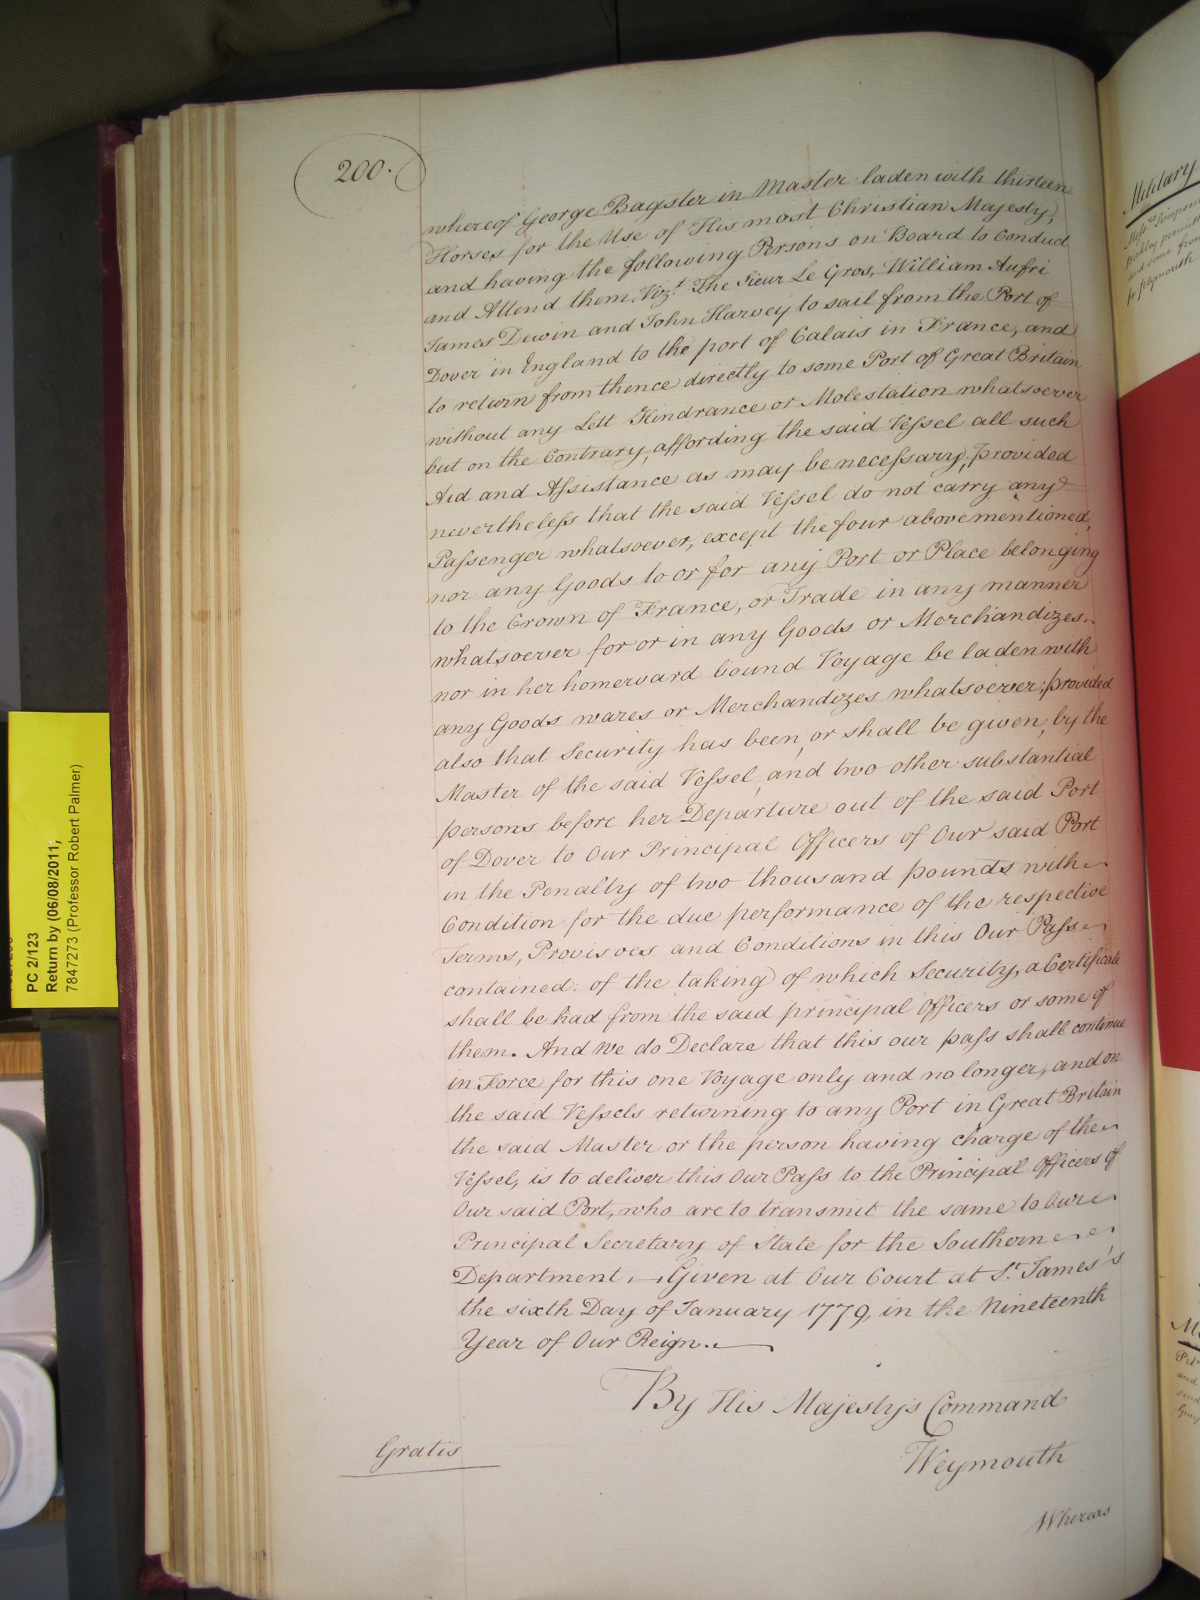 200.
whereof George Bagster in Master laden with thirteen
Horses for the Use of His most Christian Majesty,
and having the following Persons on Board to Conduct
and Attend them, Vizt. The Sieur Le Gros, William Aufri
James Dewin and John Harvey to sail from the Port of
Dover in England to the port of Calais in France, and
to return from thence directly to some Port of Great Britain
without any Lett Hindrance or Molestation whatsoever
but on the Contrary, affording the said Vessel all such
Aid and Assistance as may be necessary, provided
nevertheless that the said Vessel do not carry any
Passenger whatsoever, except the four abovementioned,
nor any Goods to or for any Port or Place belonging
to the Crown of France, or Trade in any manner
whatsoever for or in any Goods or Merchandizes
nor in her homeward bound Voyage be laden with
any Goods wares or Merchandizes whatsoever; provided
also that Security has been, or shall be given, by the
Master of the said Vessel, and two other substantial
persons before her Departure out of the said Port
of Dover to Our Principal Officers of Our said Port
in the Penalty of two thousand pounds with
Condition for the due performance of the respective
Terms, Provisoes and Conditions in this Our Pass
contained. of the taking of which Security, a Certificate
shall be had from the said principal Officers or some of
them. And We do Declare that this our pass shall continue
in Force for this one Voyage only and no longer, and on
the said Vessels returning to any Port in Great Britain
the said Master or the person having charge of the
Vessel, is to deliver this Our Pass to the Principal Officers of
Our said Port, who are to transmit the same to Our
Principal Secretary of State for the Southern
Department. Given at Our Court at St. James's
the sixth Day of January 1779, in the Nineteenth
Year of Our Reign.
By His Majesty's Command
Gratis
Weymouth
Whereas
Military
PC 2/123
Return by (06/08/2011;
7847273 (Professor Robert Palmer)